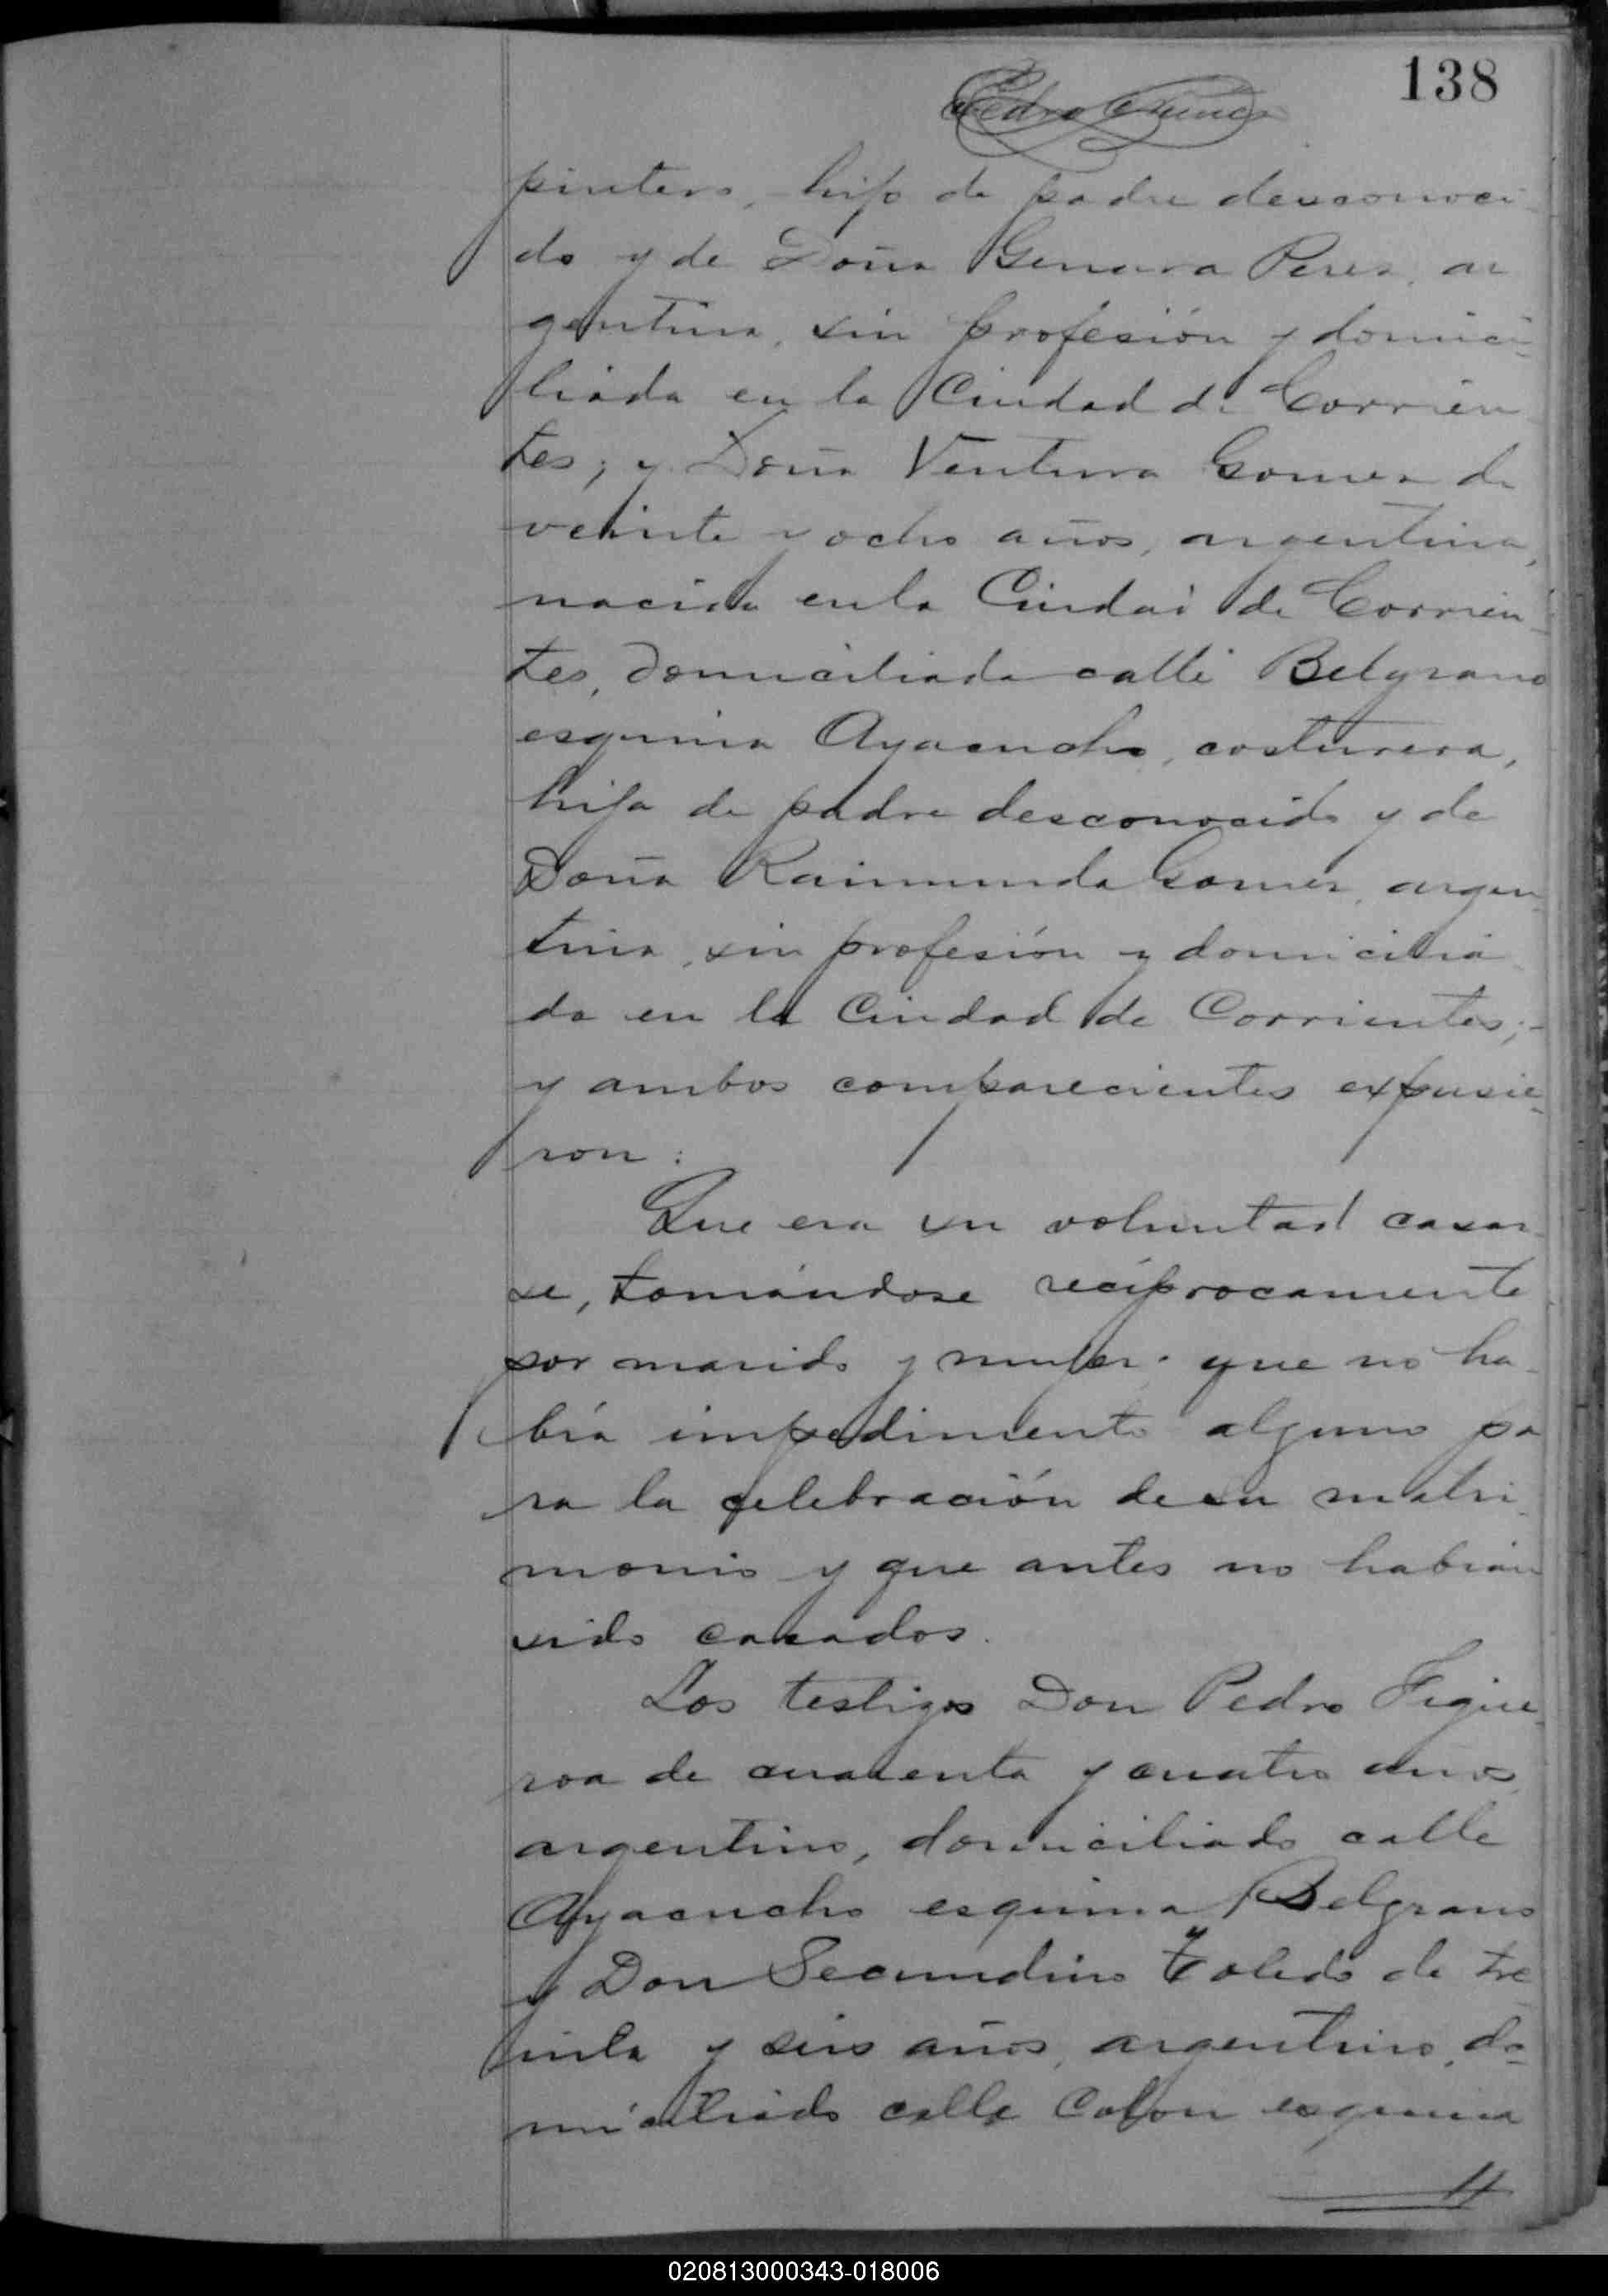 138
Pedro
pintero, hijo de padre desconoci-
do y de Doña Genara Perez, ar
gentina, sin profesión y domici-
liada en la Ciudad de Corrien
tes; y Doña Ventura Gomez de
veinte y ocho años, argentina,
nacida en la Ciudad de Corrien-
tes, domiciliada calle Belgrano
esquina Ayacucho, costurera,
hija de padre desconocido y de
Doña Raimunda Gomez, argen
tina, sin profesión y domicilia
da en la Ciudad de Corrientes;-
y ambos comparecientes expusie-
ron:
Que era su voluntad casar
se, tomándose recíprocamente
por marido y mujer; que no ha-
bía impedimento alguno pa
ra la celebración de su matri-
monio y que antes no habían
sido casados.
Los testigos Don Pedro Figue-
roa de cuarenta y cuatro años
argentino, domiciliado calle
Ayacucho esquina Belgrano
y Don Secundino Toledo de tre
inta y seis años, argentino, do-
miciliado calle Colon esquina
020813000343-018006